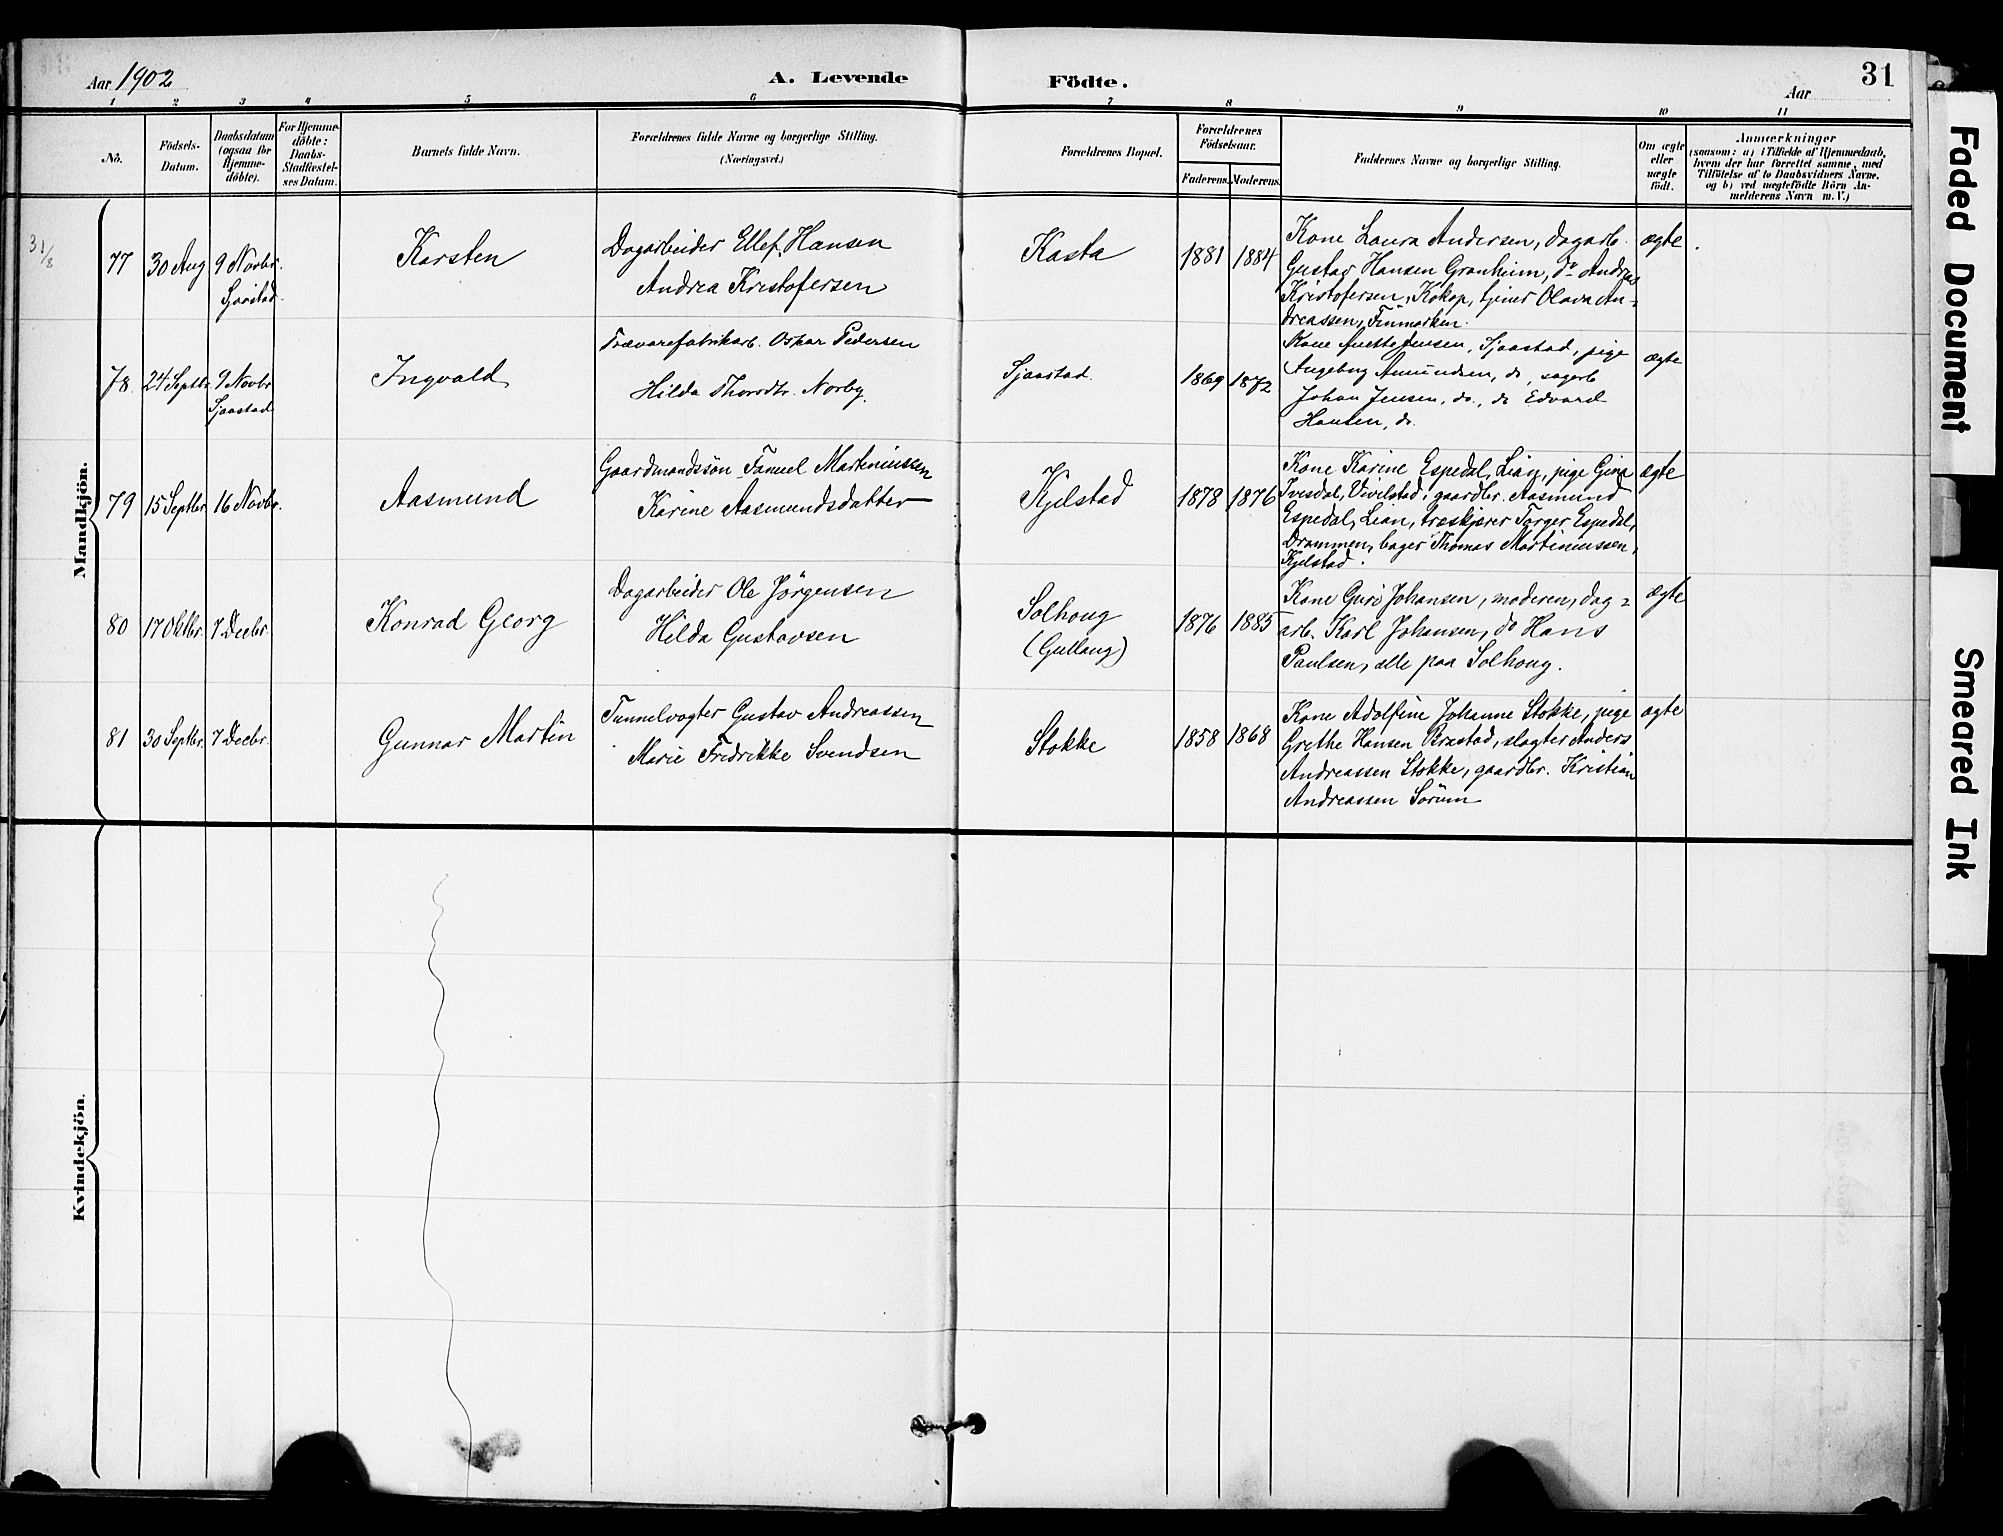 Aar 1902
A. Levende
Födte.
Aar
31
1 2 3 4 5 6 7 8 9 10 11
No.
Födsels-
Datum.
Daabsdatum
(ogsaa for
Hjemme-
döbte).
For Hjemme-
döbte:
Daabs-
Stadfæstel-
ses Datum.
Barnets fulde Navn.
Forældrenes fulde Navne og borgerlige Stilling.
(Næringsvei.)
Forældrenes Bopæl.
Forældrenes
Födselsaar.
Faderens. Moderens.
Faddernes Navne og borgerlige Stilling.
Om ægte
eller
uægte
födt.
Anmærkninger
(saasom: a) i Tilfælde af Hjemmedaab,
hvem der har forrettet samme, med
Tilföielse af to Daabsvidners Navne,
og b) ved uægtefödte Börn An-
melderens Navn m.V.)
Mandkjön.
31/8
77
30 Aug
9 Novbr.
Sjaastad.
Karsten
Dagarbeider Ellef Hansen
Andrea Kristofersen
Kasta
1881
1884
Kone Laura Andersen, dagarb.
Gustav Hansen Granheim, do Andreas
Kristofersen, Kokop, tjener Olava An-
dreassen, Finmarken.
ægte
78.
24 Septbr
9 Novbr
Sjaastad
Ingvald
Trævarefabrikarb. Oskar Pedersen
Hilda Thorsdtr. Norby.
Sjaastad.
1869
1872
Kone Anette Jensen, Sjaastad, pige
Angeborg Amundsen, do, sagarb
Johan Jensen, do., do Edvard
Hansen, do.
ægte
79
15 Septbr
16 Novbr.
Aasmund
Gaardmandssön Fanuel Martiniussen
Karine Aasmundsdatter
Kjelstad
1878
1876
Kone Karine Espedal, Lian, pige Gina
Ivesdal, Vivilstad, gaardbr. Aasmund
Espedal, Lian, træskjærer Torger Espedal,
Drammen, bager Thomas Martiniussen,
Kjelstad.
ægte
80
17 Oktbr.
7 Decbr.
Konrad Georg
Dagarbeider Ole Jörgensen
Hilda Gustavsen
Solhoug
(Gullaug)
1876
1885
Kone Guri Johansen, moderen, dag-
arb. Karl Johansen, do Hans
Paulsen, alle paa Solhoug.
ægte
81
30 Septbr.
7 Decbr.
Gunnar Martin
Tunnelvogter Gustav Andreassen
Marie Fredrikke Svendsen
Stokke
1858
1868
Kone Adolfine Johanne Stokke, pige
Grethe Hansen Bræstad, slagter Anders
Andreassen Stokke, gaardbr. Kristian
Andreassen Sörum
ægte
Kvindekjön.
Faded Document
Smeared Ink